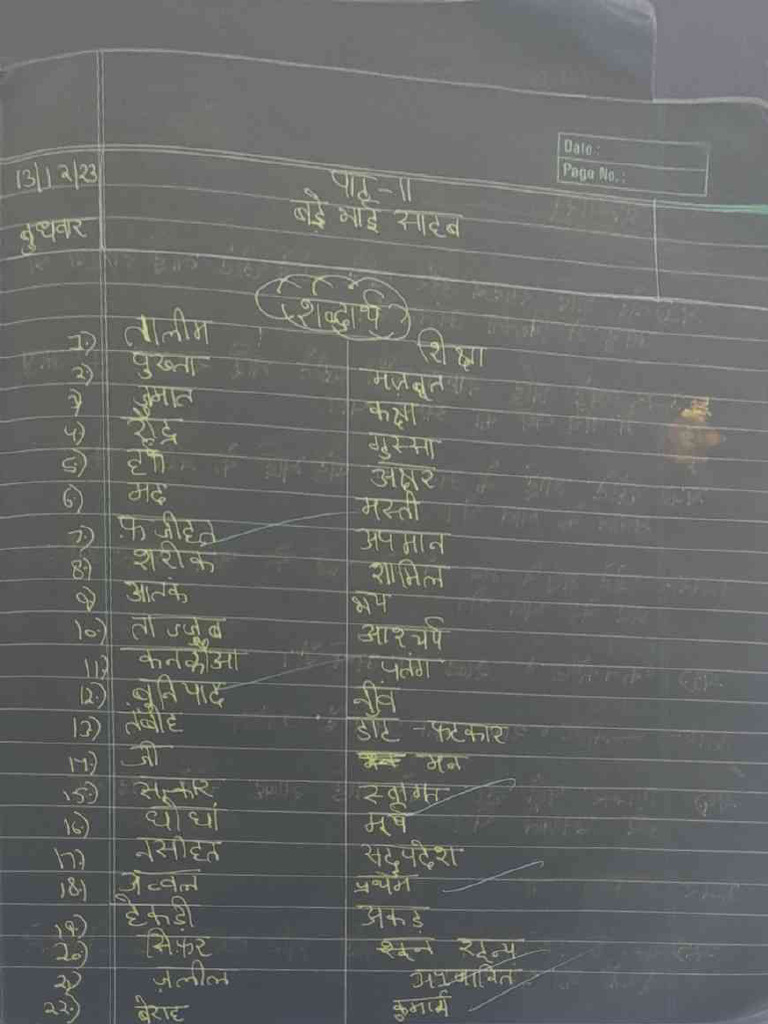 Date:
Page No.:
13/12/23
पाठ-11
बुधवार
बड़े भाई साहब
शब्दार्थ
1) तालीम शिक्षा
2) पुख्ता मज़बूत
3) जमात कक्षा
4) रौद्र गुस्सा
5) हर्फ अक्षर
6) मद मस्ती
7) फ़जीहत अपमान
8) शरीक शामिल
9) आतंक भय
10) ताज्जुब आश्चर्य
11) कनकौआ पतंग
12) बुनियाद नींव
13) तंबीह डाँट-फटकार
14) जी मन
15) सत्कार स्वागत
16) घोंघा मूर्ख
17) नसीहत सदुपदेश
18) अव्वल प्रथम
19) हेकड़ी अकड़
20) सिफ़र शून्य
21) ज़लील अपमानित
22) बेराह कुमार्ग